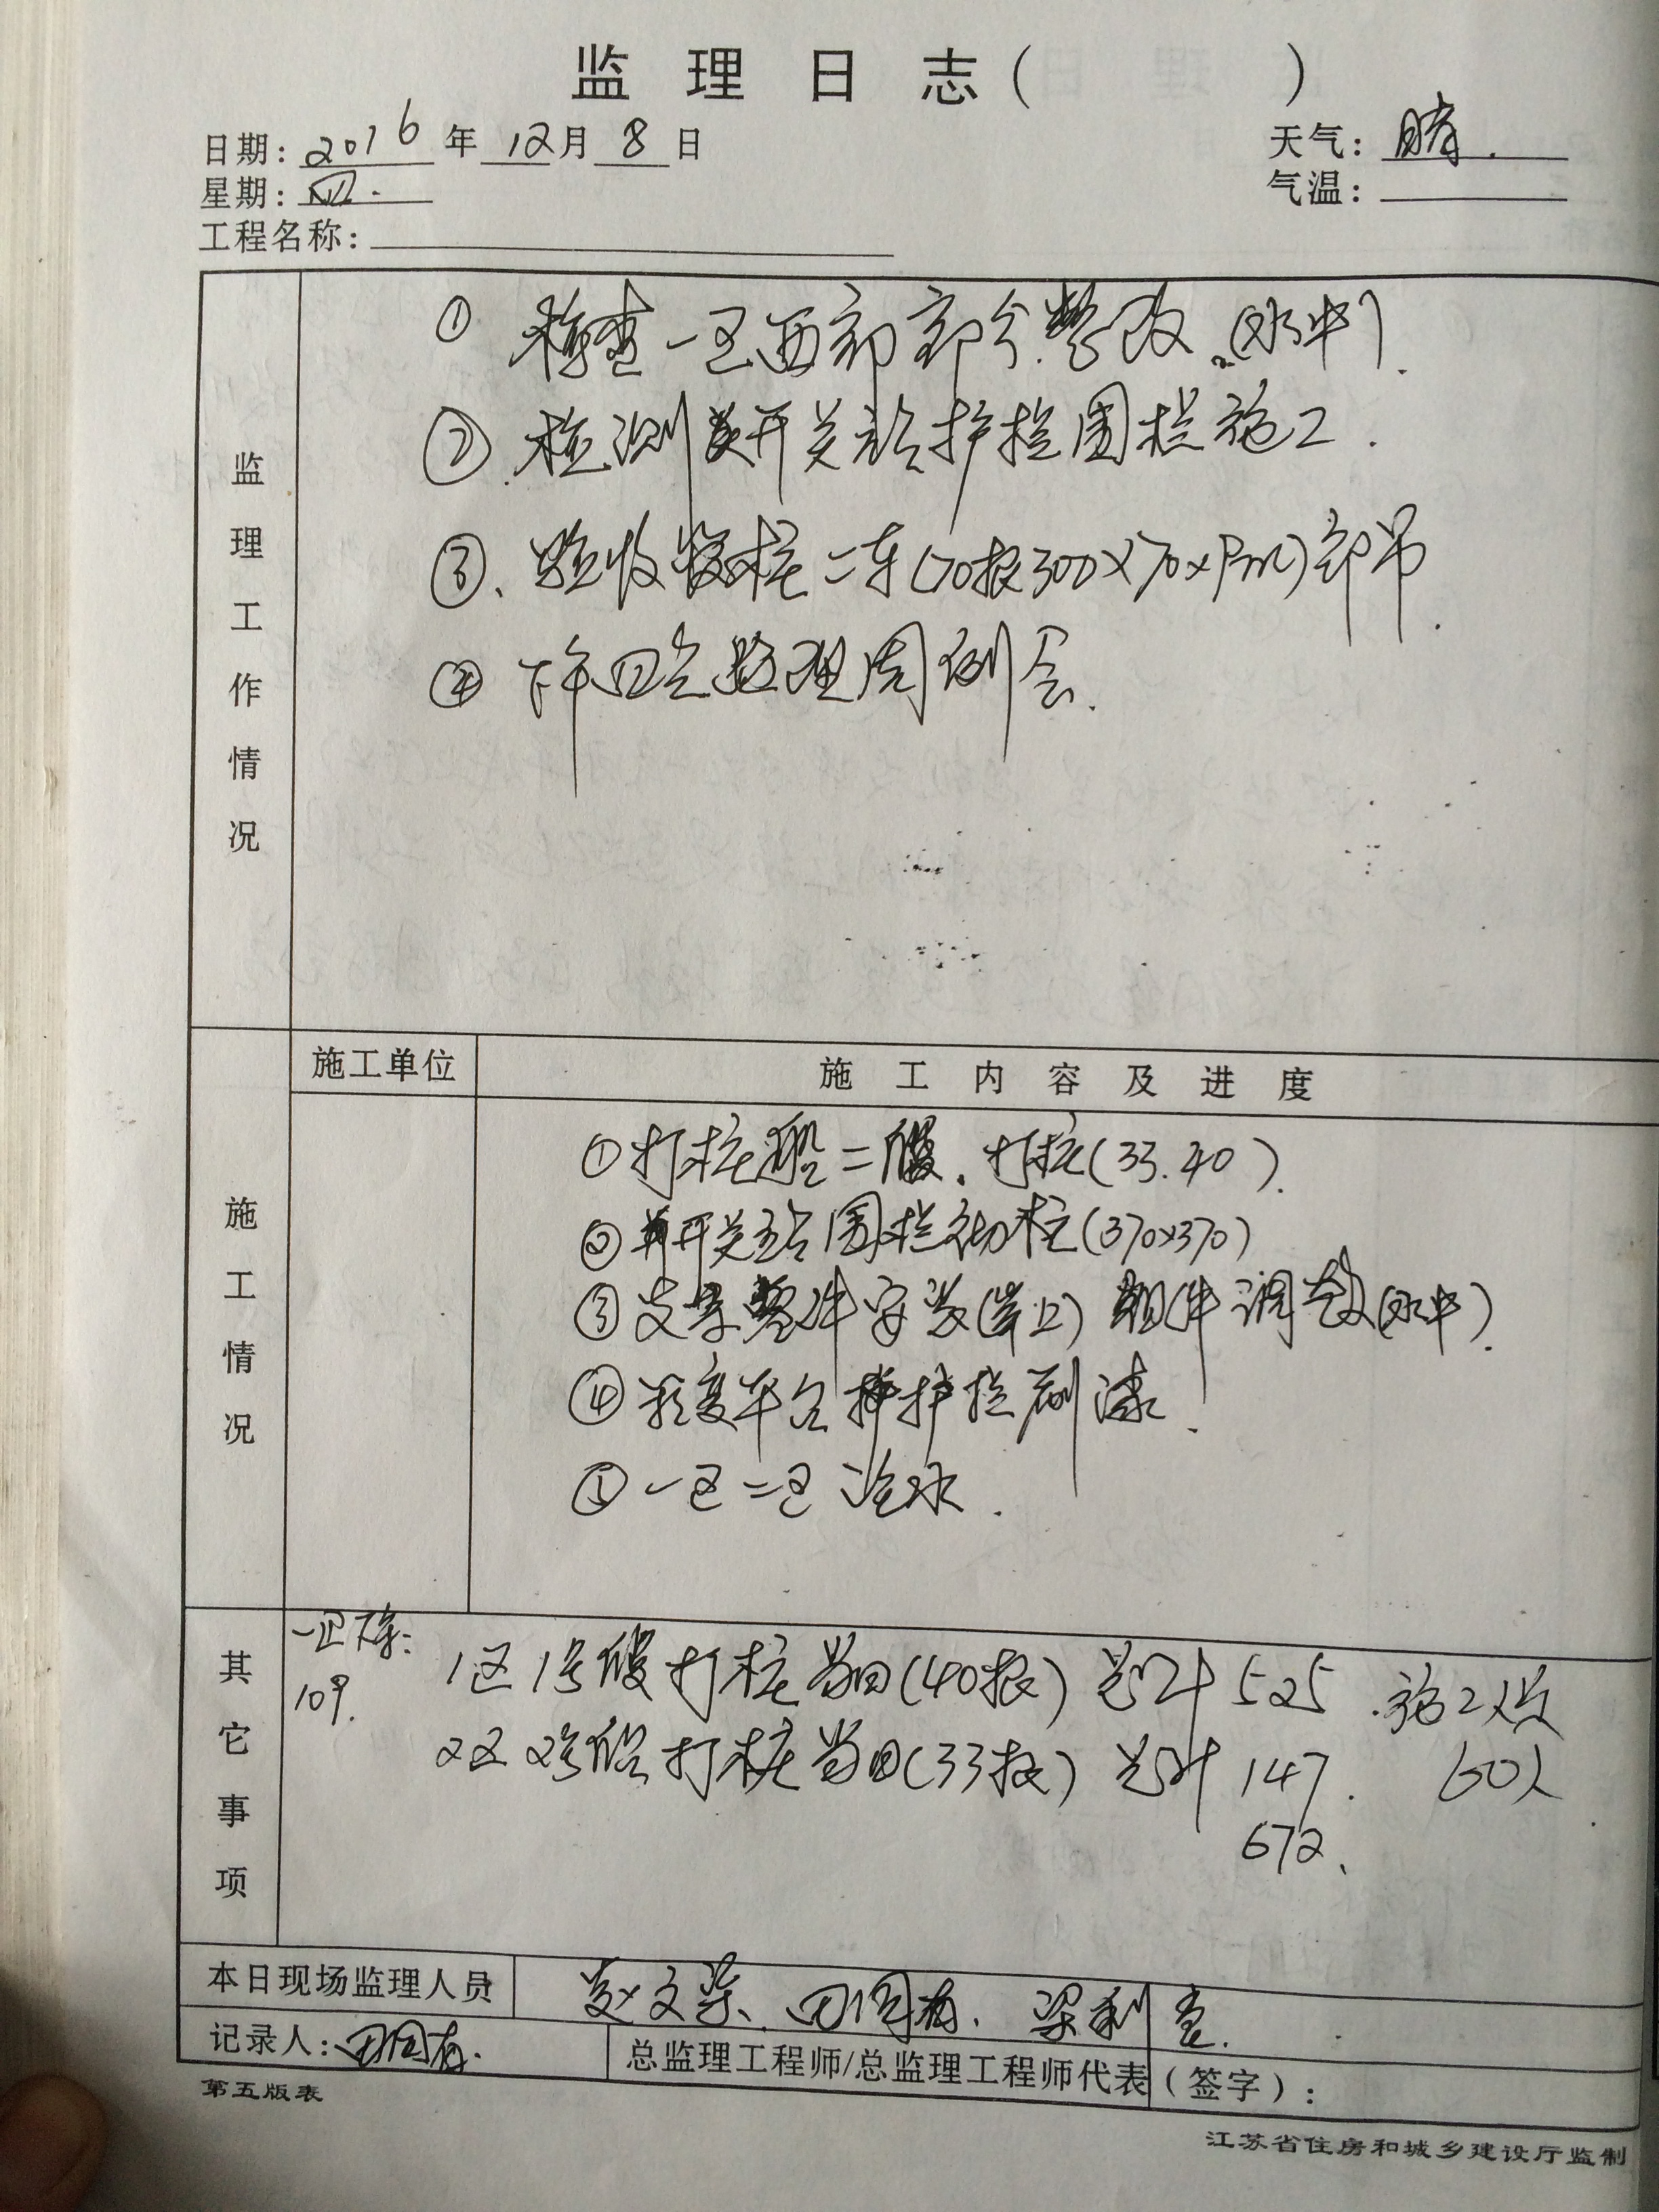 监理日志( )
日期: 2016 年 12 月 8 日
天气: 晴.
星期: 四.
气温:
工程名称:
监理工作情况
① 检查一区西部部分整改.(水中).
② 检测 开关站护栏围栏施工.
③. 验收 桩二车(70根300×70×9m)卸吊.
④ 下午四点监理周例会.
施工单位
施工内容及进度
施工情况
①打桩船二艘. 打桩(33.40).
② 开关站围栏砌柱(370×370)
③支架 件安装(岸上) 组件调整(水中).
④ 变平台 护栏刷漆.
⑤一区二区 水.
其它事项
109.
1区1号艘打桩当日(40根) 总计525 .施工人员
2区2号船打桩当日(33根) 总计 147. 60人
672、
本日现场监理人员
记录人: 田国有.
总监理工程师/总监理工程师代表(签字):
第五版表
江苏省住房和城乡建设厅监制